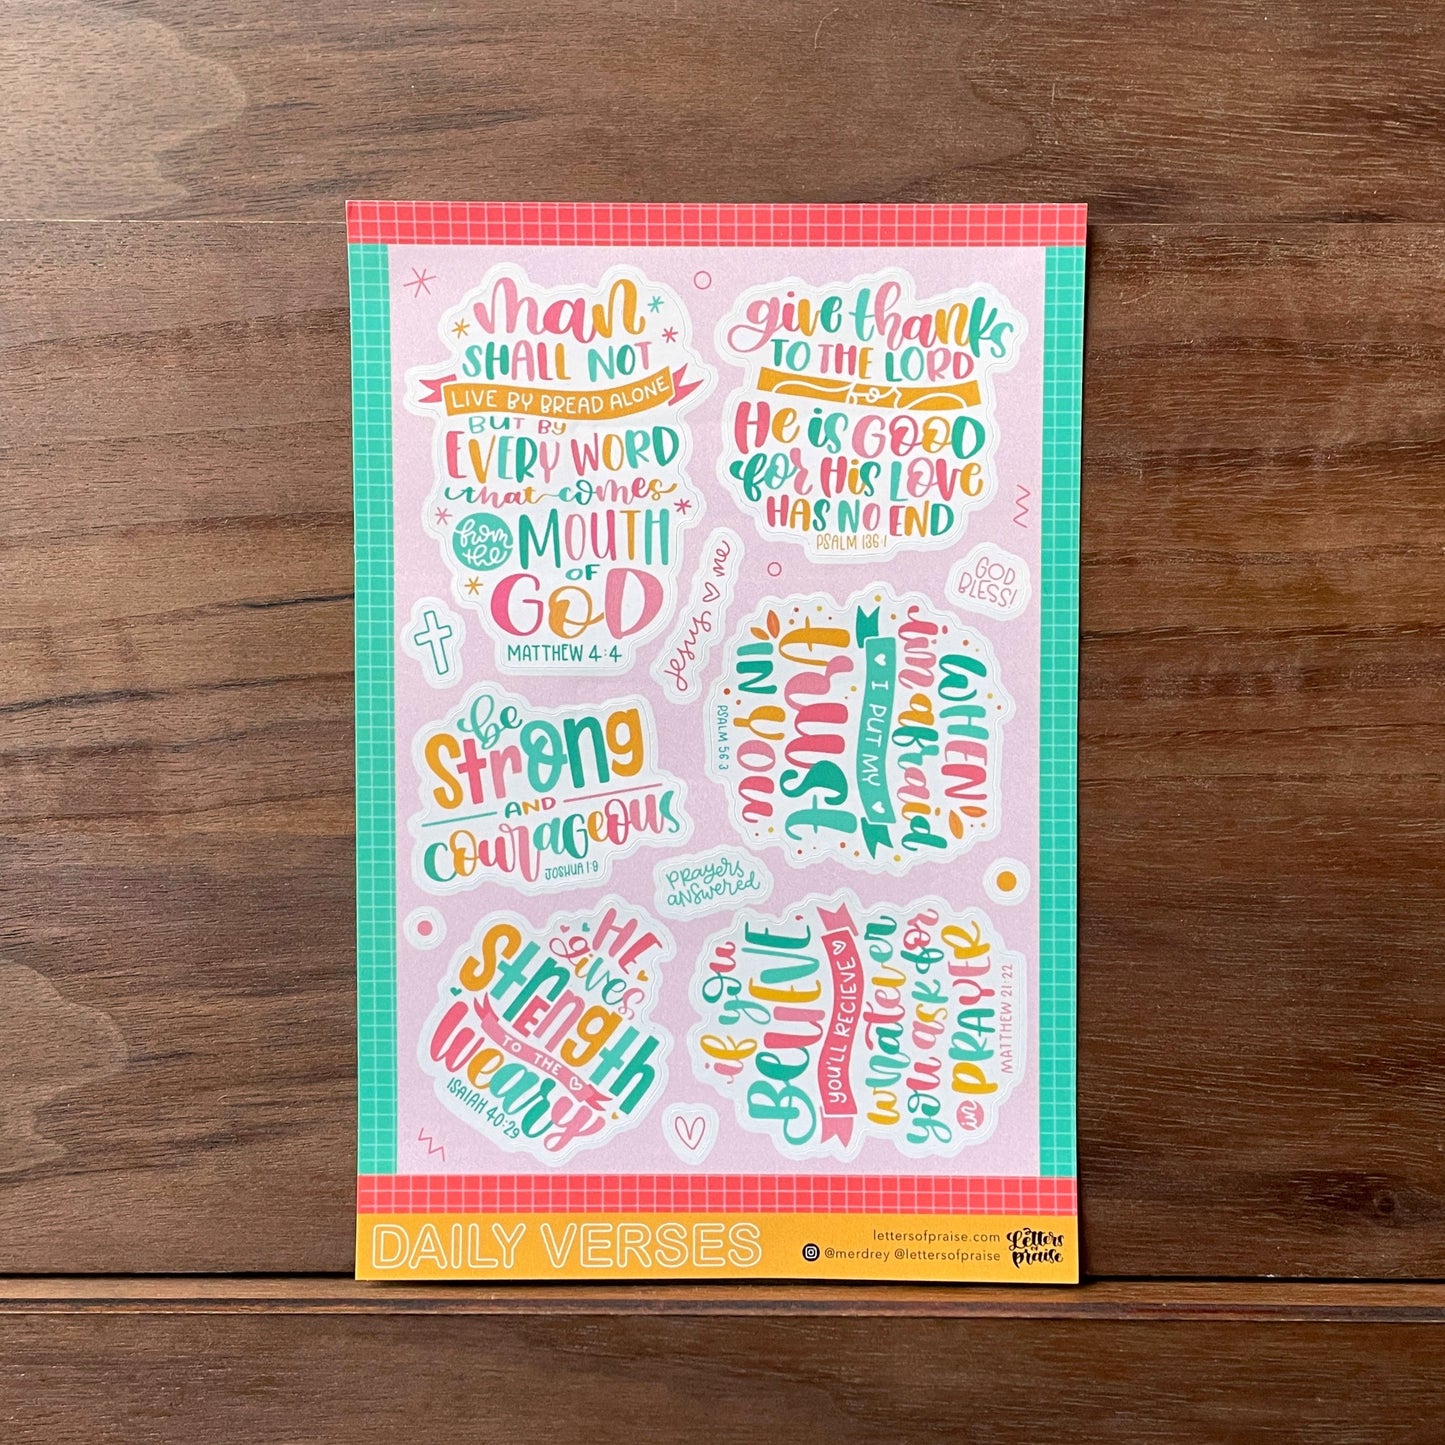 man
SHALL NOT
LIVE BY BREAD ALONE
BUT BY
EVERY WORD
that comes
from the
MOUTH
OF
GOD
MATTHEW 4:4
give thanks
TO THE LORD
for
HE is GOOD
for His LOVE
HAS NO END
PSALM 136:1
Jesus me
GOD
BLESS!
WHEN
im afraid
I PUT MY
TRUST
IN
YOU
PSALM 56:3
be
Strong
AND
courageous
JOSHUA 1:9
PRAYERS
ANSWERED
HE
gives
STRENGTH
TO THE
weary
ISAIAH 40:29
if you
BELIEVE,
YOU'LL RECIEVE
whatever
you ask for
in PRAYER
MATTHEW 21:22
DAILY VERSES
lettersofpraise.com
@merdrey @lettersofpraise
Letters
of
praise